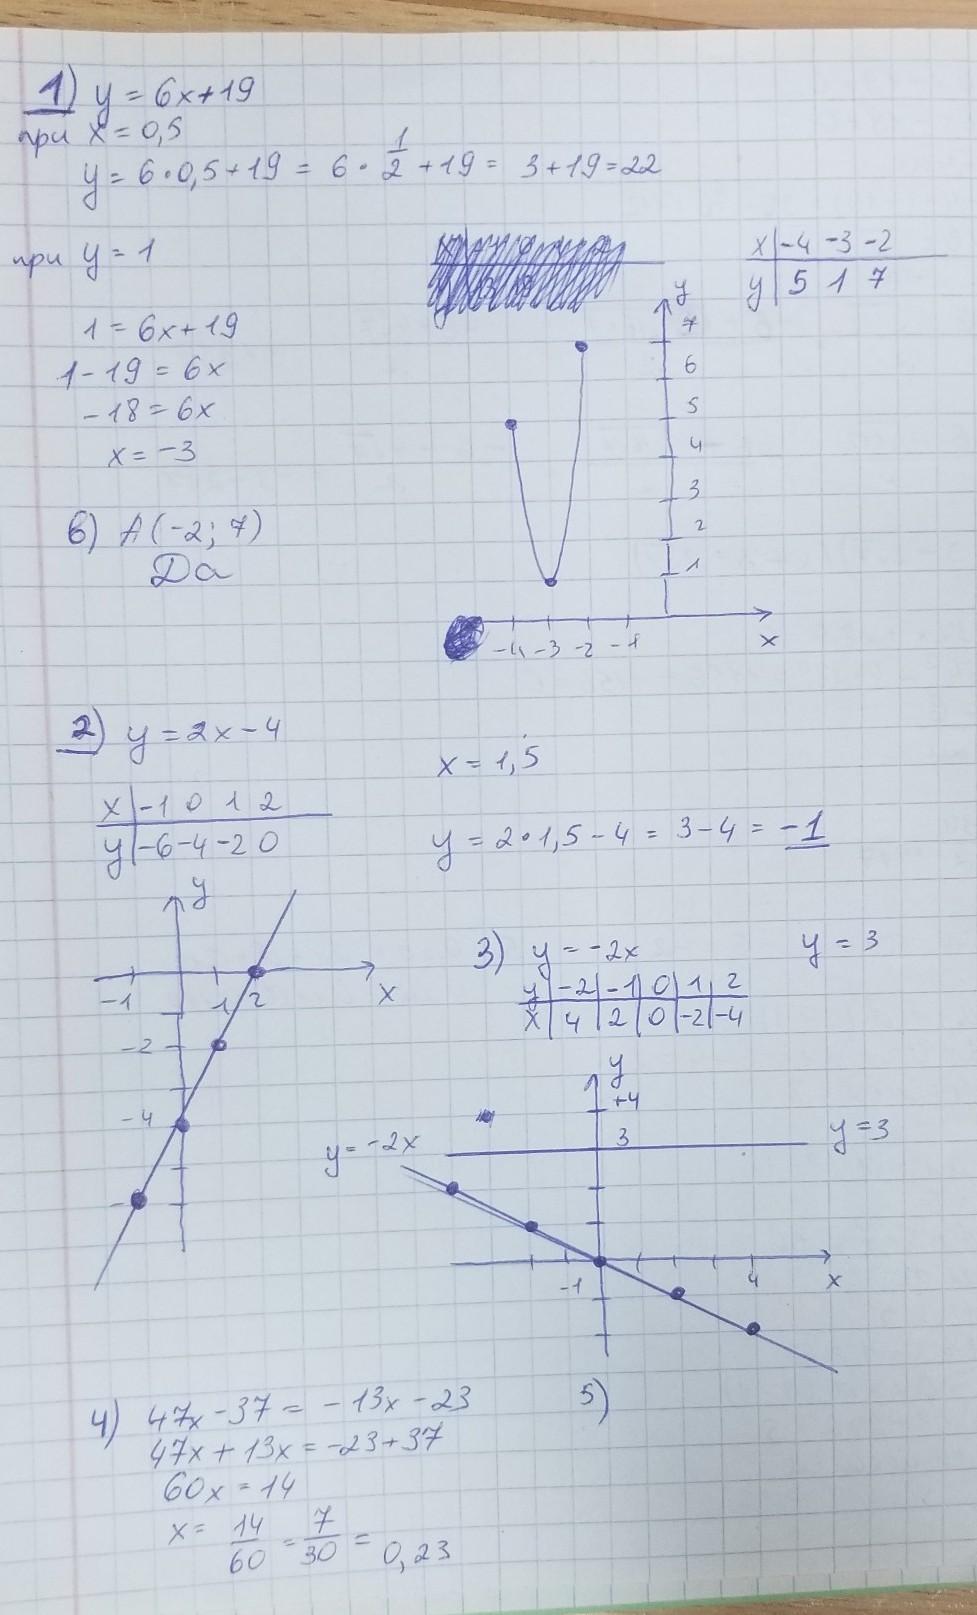 1) y = 6x+19
при x = 0,5
y = 6·0,5+19 = 6·1/2+19 = 3+19=22
при y = 1
x | -4 -3 -2
y | 5 1 7
1 = 6x+19
1-19 = 6x
-18 = 6x
x = -3
в) A(-2; 7)
Да
y
7
6
5
4
3
2
1
-4 -3 -2 -1
x
2) y = 2x-4
x | -1 0 1 2
y | -6 -4 -2 0
x = 1,5
y = 2·1,5-4 = 3-4 = -1
y
-1 1 2 x
-2
-4
3) y = -2x
y = 3
y | -2 | -1 | 0 | 1 | 2
x | 4 | 2 | 0 | -2 | -4
y
+4
3
y = -2x
y = 3
-1 4 x
4) 47x-37 = -13x-23
47x+13x = -23+37
60x = 14
x = 14/60 = 7/30 = 0,23
5)